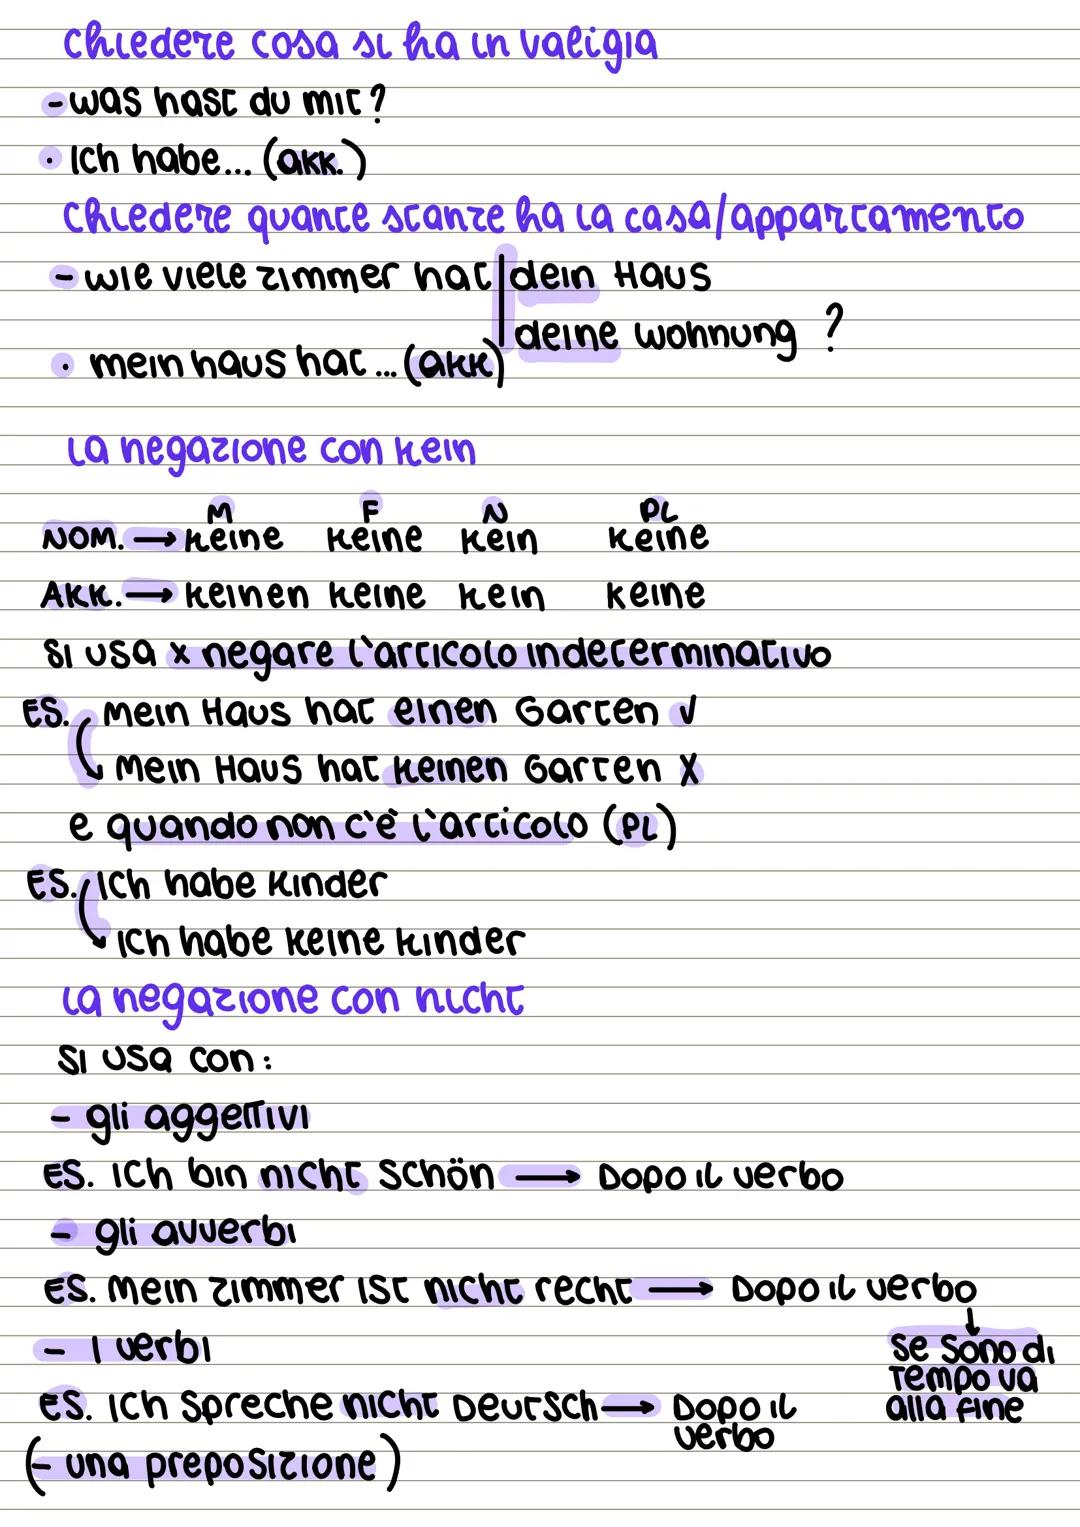 Chiedere cosa si ha in valigia
- was hast du mit?
• Ich habe... (akk.)
Chiedere quante stanze ha la casa/appartamento
- wie viele zimmer hat | dein Haus
deine wohnung ?
• mein haus hat ... (akk)
La negazione con kein
M F N PL
NOM. → keine keine kein keine
AKK. → keinen keine kein keine
Si usa x negare l'articolo indeterminativo
ES. Mein Haus hat einen Garten √
Mein Haus hat keinen Garten X
e quando non c'è l'articolo (PL)
ES. Ich habe kinder
Ich habe keine kinder
La negazione con nicht
Si usa con:
- gli aggettivi
ES. Ich bin nicht schön → Dopo il verbo
- gli avverbi
ES. Mein zimmer ist nicht recht → Dopo il verbo
↓
se sono di
tempo va
alla fine
- i verbi
ES. Ich spreche nicht Deutsch → Dopo il
verbo
(- una preposizione)